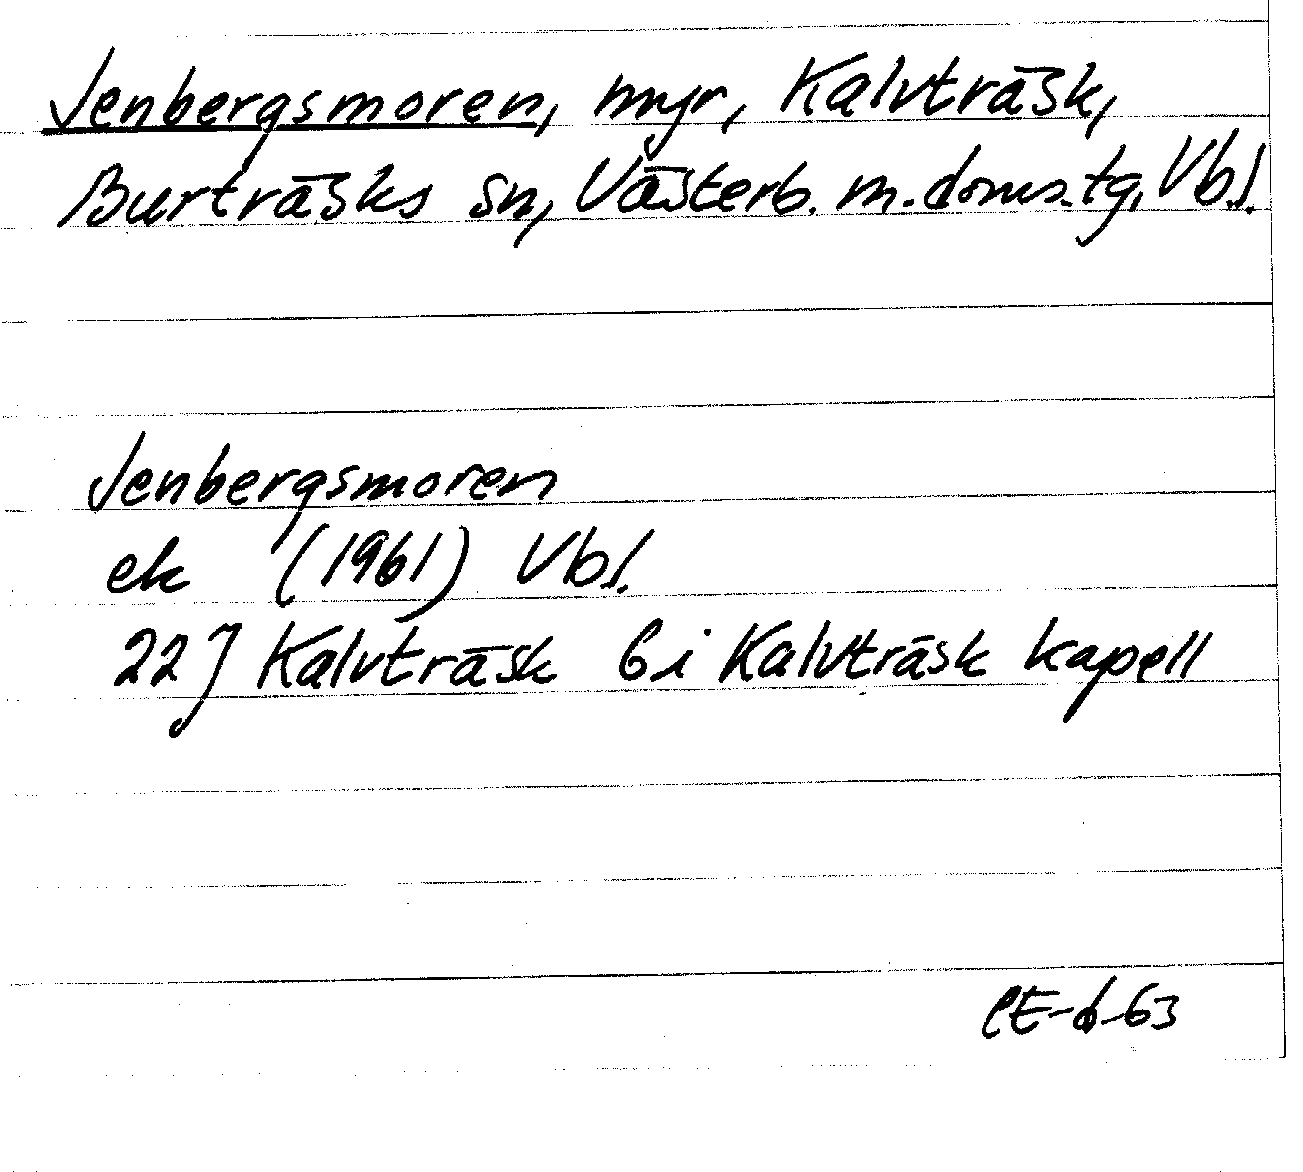 Jenbergsmoren, myr, Kalvträsk,
Burträsks sn, Västerb. m. doms.tg, Vbl.
Jenbergsmoren
ek (1961) Vbl.
22J Kalvträsk 6i Kalvträsk kapell